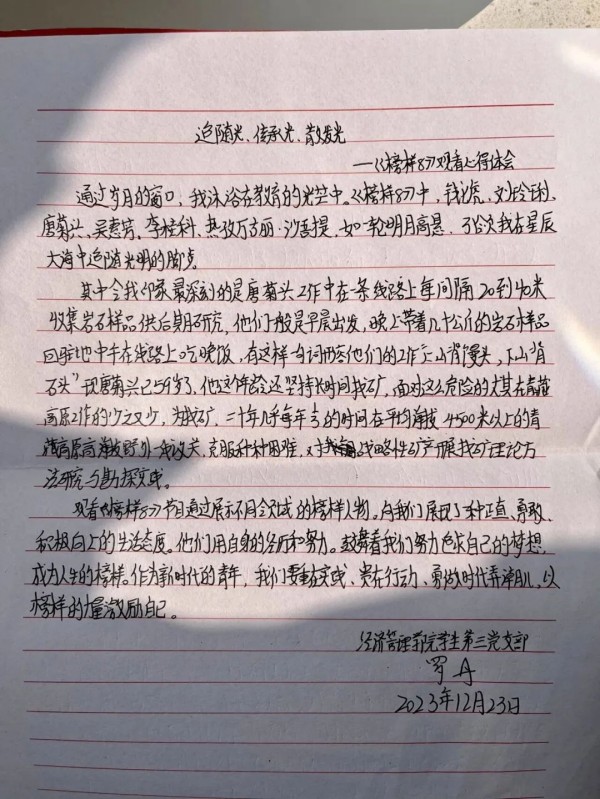 追随光、传承光、散发光
——《榜样8》观看心得体会
通过岁月的窗口,我沐浴在教育的光芒中。《榜样8》中,钱七虎、刘玲琍、
唐菊兴、吴惠芳、李桂科、热孜万古丽·沙吾提,如一轮明月高悬,引众我在星辰
大海中追随光明的脚步。
其中令我印象最深刻的是唐菊兴工作中在一条线路上每间隔20到40米
收集岩石样品供后期研究,他们一般是早晨出发,晚上带着几十公斤的岩石样品
回驻地中午在线路上吃晚饭,有这样一句词形容他们的工作"上山背馒头,下山背
石头"现唐菊兴已59岁了,他这个年龄还坚持长时间找矿,面对这么危险的尤其在青藏
高原工作的少之又少,为找矿,二十年几乎每年的时间在平均海拔4500米以上的青
藏高原高海拔野外一线攻关,克服种种困难,对我国战略性矿产开展找矿理论方
法研究与勘探实践。
观看《榜样8》节目通过展示不同领域的榜样人物。向我们展现了一种正直、勇敢、
积极向上的生活态度。他们用自身的经历和努力。鼓舞着我们努力追求自己的梦想,
成为人生的榜样。作为新时代的青年,我们要重在实践、贵在行动、勇做时代弄潮儿,以
榜样的力量激励自己。
经济管理学院学生第三党支部
罗丹
2023年12月23日